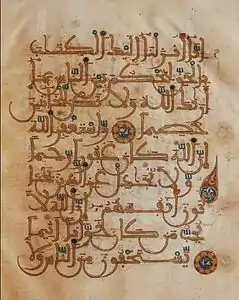 إنا أنزلنا إليك الكتاب
بالحق لتحكم بين الناس بما
أريك الله ولا تكن للخائنين
خصيما واستغفر الله
إن الله كان غفورا رحيما
ولا تجادل عن الذين يختا
نون أنفسهم إن الله لا
يحب من كان خوانا أثيما
يستخفون من الناس و